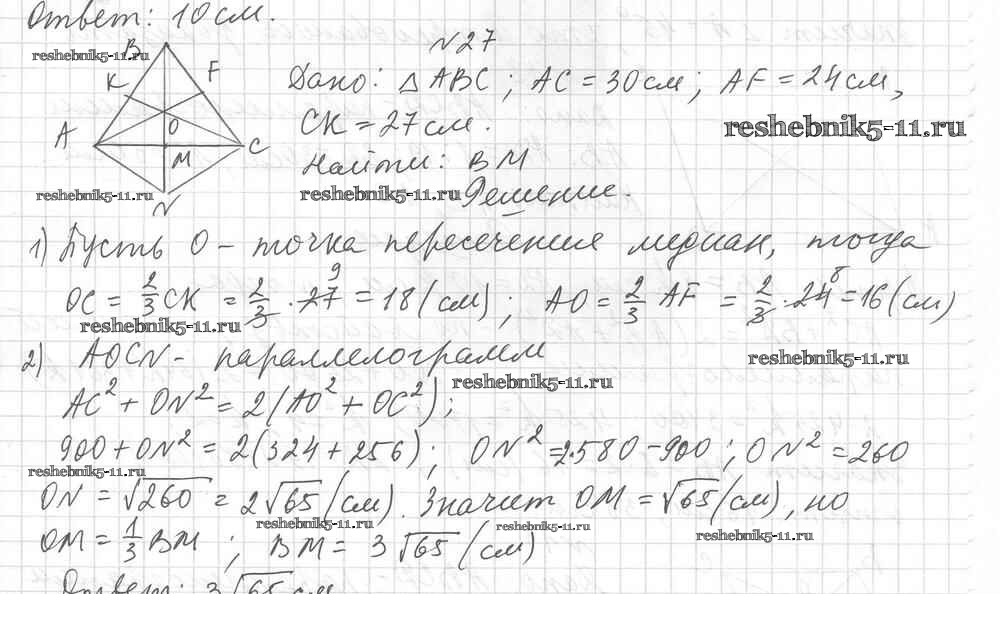 Ответ: 10 см.
N27
reshebnik5-11.ru
B
K
F
Дано: △ABC; AC = 30 см; AF = 24 см,
CK = 27 см.
reshebnik5-11.ru
A
O
C
M
Найти: BM
reshebnik5-11.ru
reshebnik5-11.ru
Решение.
N
1) Пусть O - точка пересечения медиан, тогда
OC = 2/3 CK = 2/3 · 27 9 = 18 (см); AO = 2/3 AF = 2/3 · 24 8 = 16 (см)
reshebnik5-11.ru
2) AOCN - параллелограмм
reshebnik5-11.ru
reshebnik5-11.ru
AC² + ON² = 2(AO² + OC²);
900 + ON² = 2(324 + 256); ON² = 2·580 - 900; ON² = 260
reshebnik5-11.ru
ON = √260 = 2√65 (см). Значит OM = √65 (см), но
reshebnik5-11.ru
reshebnik5-11.ru
reshebnik5-11.ru
OM = 1/3 BM; BM = 3√65 (см)
Ответ: 3√65 см